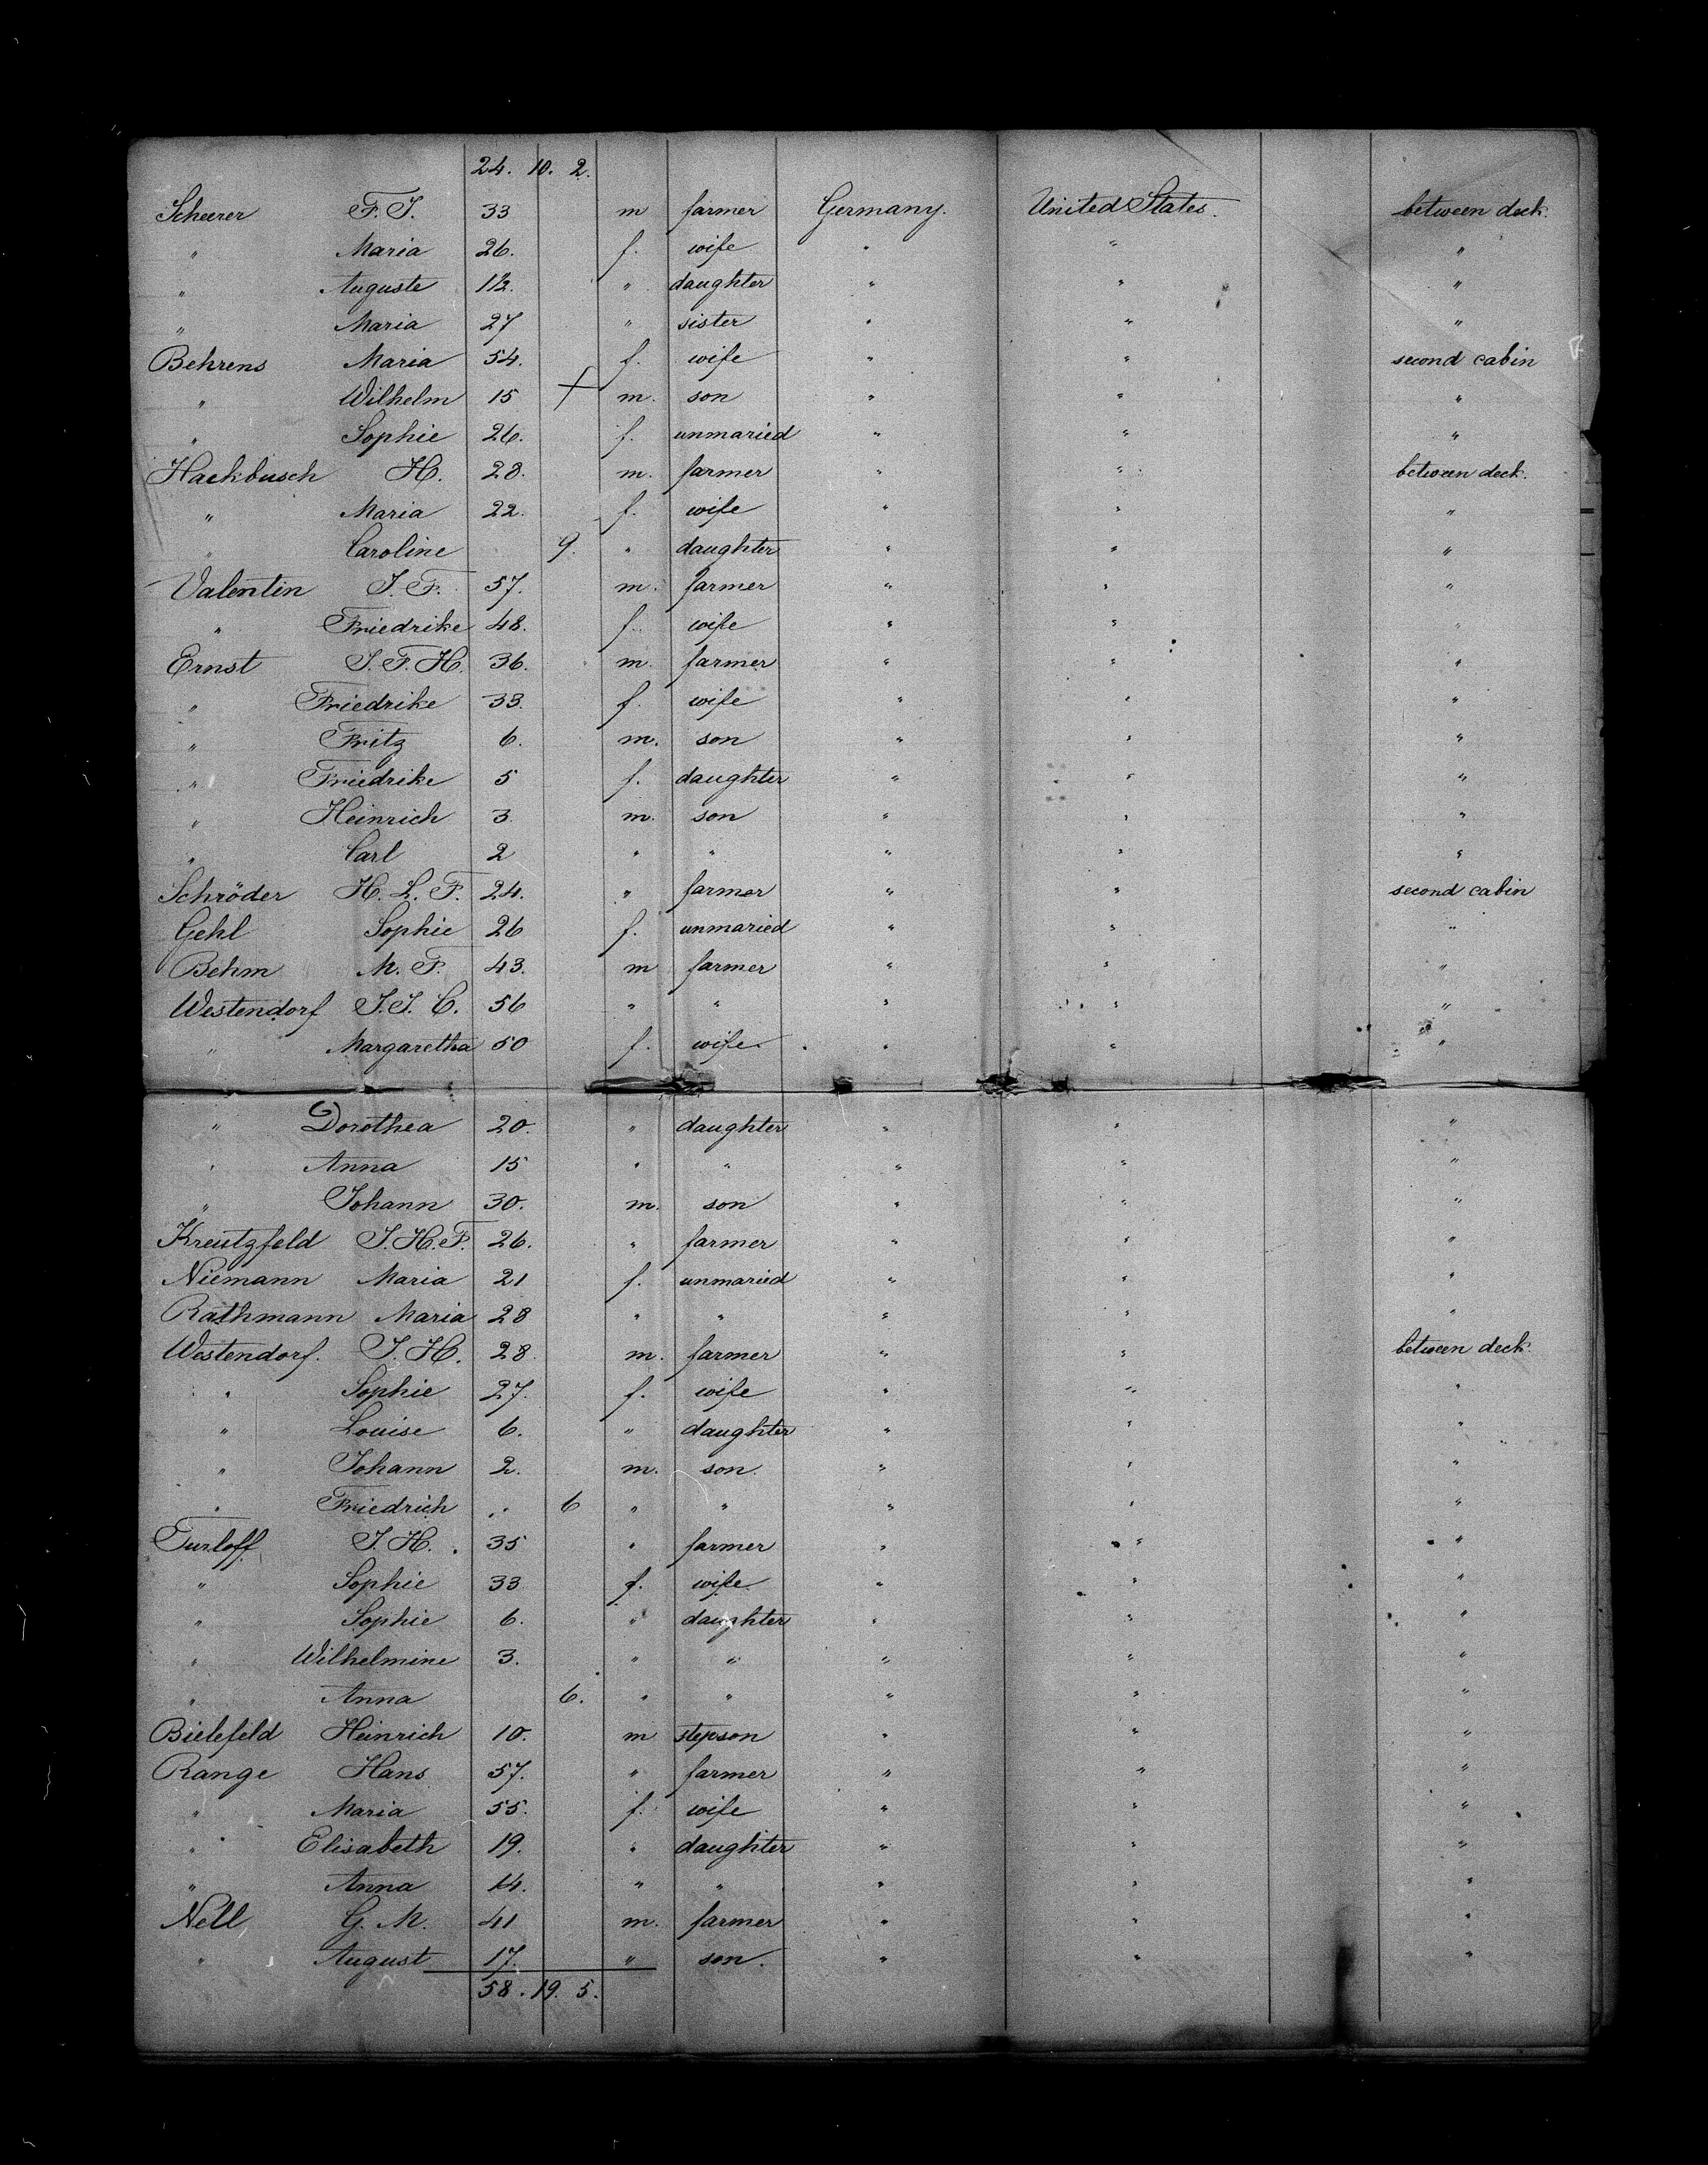 24. 10. 2.
Scheerer F. J. 33 m farmer Germany. United States. between deck.
" Maria 26. f. wife " " "
" Auguste 1½. " daughter " " "
" Maria 27 " sister " " "
Behrens Maria 54. f. wife " " second cabin
" Wilhelm 15 + m. son " " "
" Sophie 26. f. unmaried " " "
Hackbusch H. 28. m. farmer " " between deck.
" Maria 22. f. wife " " "
" Caroline 9. " daughter " " "
Valentin J. F. 57. m. farmer " " "
" Friedrike 48. f. wife " " "
Ernst J. F. H. 36. m. farmer " " "
" Friedrike 33. f. wife " " "
" Fritz 6. m. son " " "
" Friedrike 5 f. daughter " " "
" Heinrich 3. m. son " " "
" Carl 2 " " " " "
Schröder H. L. F. 24. " farmer " " second cabin
Gehl Sophie 26 f. unmaried " " "
Behm M. F. 43. m farmer " " "
Westendorf J. J. C. 56 " " " " "
" Margaretha 50 f. wife " " "
" Dorothea 20. " daughter " " "
" Anna 15 " " " " "
" Johann 30. m. son " " "
Kreutzfeld J. H. F. 26. " farmer " " "
Niemann Maria 21 f. unmaried " " "
Rathmann Maria 28 " " " " "
Westendorf. J. H. 28. m. farmer " " between deck.
" Sophie 27. f. wife " " "
" Louise 6. " daughter " " "
" Johann 2. m. son. " " "
" Friedrich . 6 " " " " "
Turloff J. H. 35 " farmer " " "
" Sophie 33 f. wife " " "
" Sophie 6. " daughter " " "
" Wilhelmine 3. " " " " "
" Anna 6. " " " " "
Bielefeld Heinrich 10. m stepson " " "
Range Hans 57. " farmer " " "
" Maria 55. f. wife " " "
" Elisabeth 19. " daughter " " "
" Anna 14. " " " " "
Nell G. M. 41 m. farmer " " "
" August 17. " son. " " "
58. 19. 5.